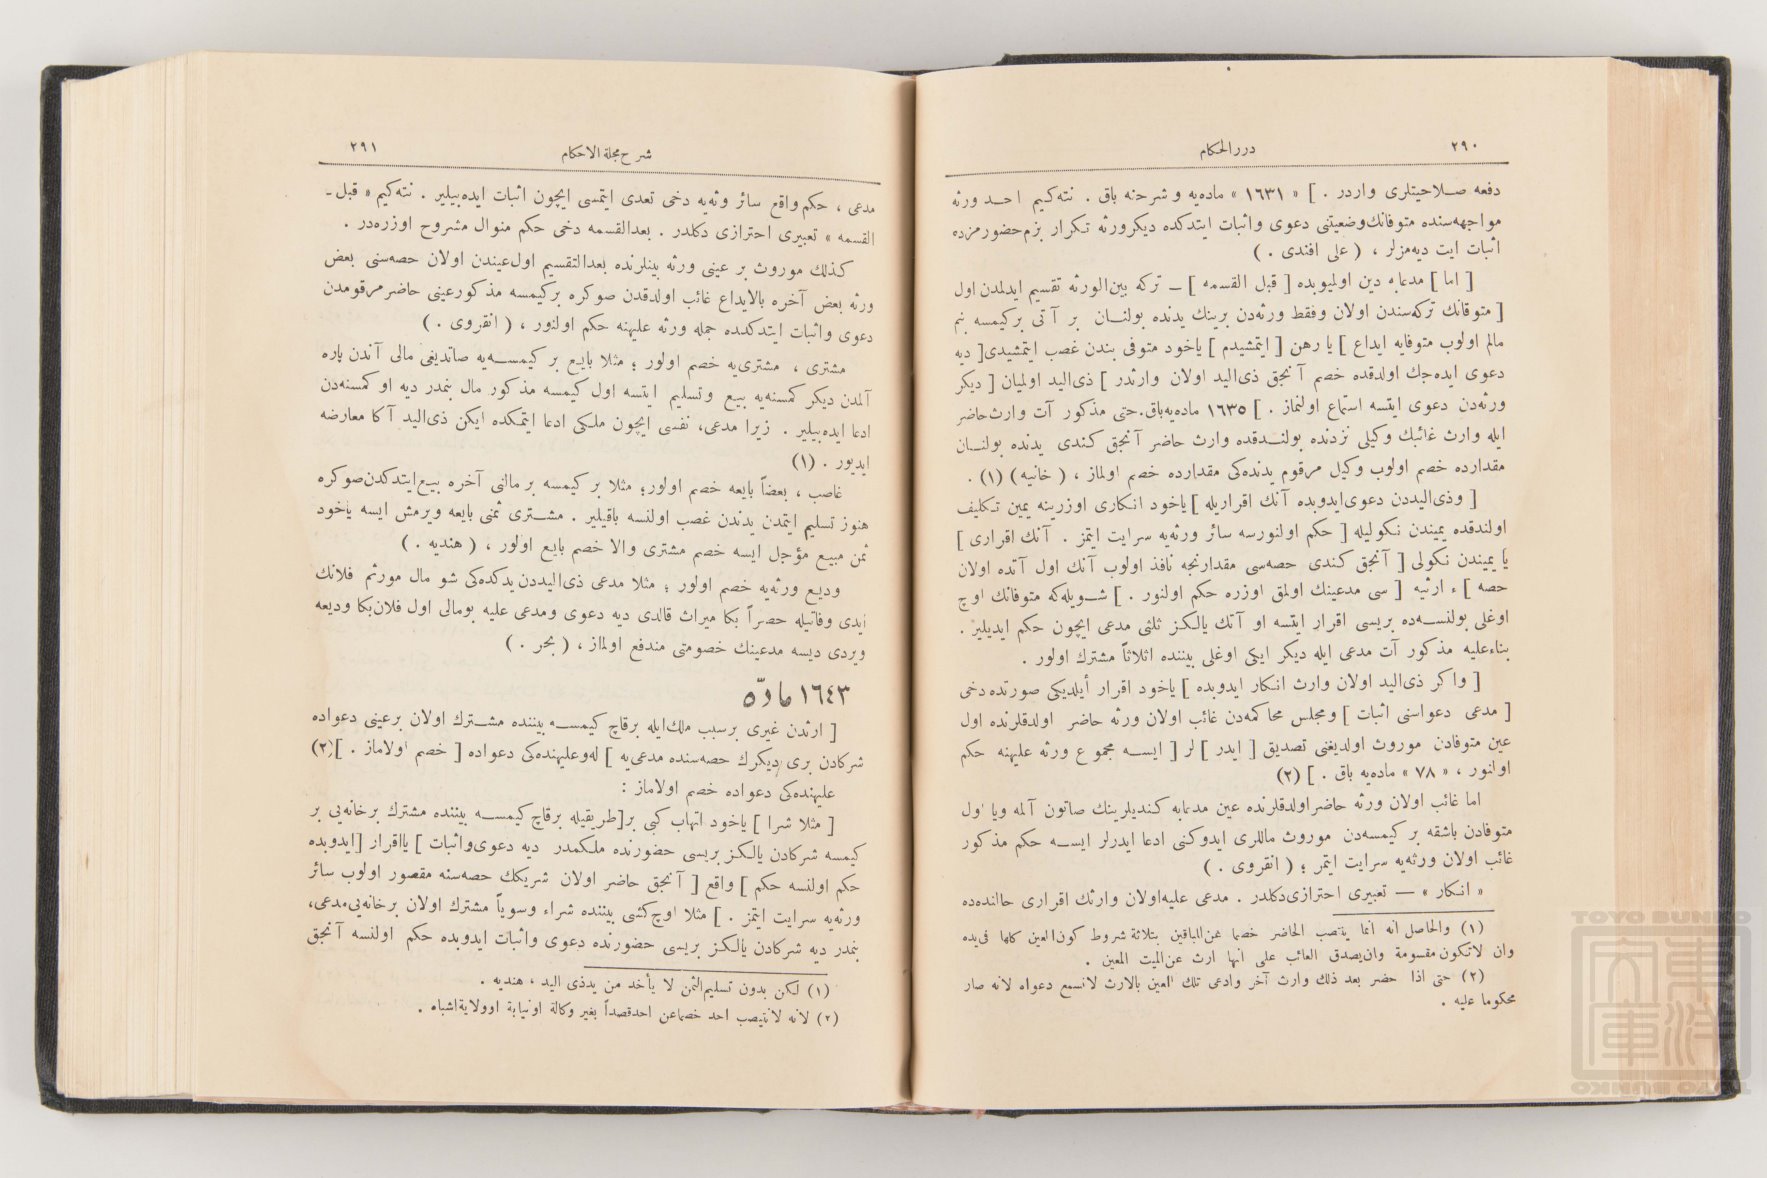 ٢٩٠
درر الحكام
دفعه صـلاحيتلرى واردر . ] « ١٦٣١ » ماده‌يه وشرحنه باق . نته‌كـيم احـد ورثه
مواجهه‌سنده متوفانك‌وضعيتنى دعوى واثبات ايتدكده ديكرورثه تـكرار بزم‌حضورمزده
اثبات ايت ديه‌مزلر ، ( على افندى . )
[ اما ] مدعابه دين اولميوبده [ قبل القسمه ] ــ تركه بين‌الورثه تقسيم ايدلمدن اول
[ متوفانك تركه‌سندن اولان وفقط ورثه‌دن برينك يدنده بولنـان بر آتى بركيمسه بنم
مالم اولوب متوفايه ايداع ] يا رهن [ ايتمشيدم ] ياخود متوفى بندن غصب ايتمشيدى[ ديه
دعوى ايده‌جك اولدقده خصم آنجق ذى‌اليد اولان وارثدر ] ذى‌اليد اولميان [ ديكر
ورثه‌دن دعوى ايتسه استماع اولنماز . ] ١٦٣٥ ماده‌يه‌باق.حتى مذكور آت وارث‌حاضر
ايله وارث غائبك وكيلى نزدنده بولنـدقده وارث حاضر آنجق كندى يدنده بولنـان
مقدارده خصم اولوب وكيل مرقوم يدنده‌كى مقدارده خصم اولماز ، ( خانيه ) (١) .
[ وذى‌اليددن دعوى‌ايدوبده آنك اقراريله ] ياخود انـكارى اوزرينه يمين تـكليف
اولندقده يميندن نـكوليله [ حكم اولنورسه سائر ورثه‌يه سرايت ايتمز . آنك اقرارى ]
يا يميندن نـكولى [ آنجق كندى حصه‌سى مقدارنجه نافذ اولوب آنك اول آتده اولان
حصه ] ء ارثيه [ سى مدعينك اولمق اوزره حكم اولنور . ] شـويله‌كه متوفانك اوچ
اوغلى بولنسـه‌ده بريسى اقرار ايتسه او آتك يالكـز ثلثى مدعى ايچون حكم ايديلير .
بناءعليه مذكور آت مدعى ايله ديكر ايكى اوغلى بيننده اثلاثاً مشترك اولور .
[ واكر ذى‌اليد اولان وارث انـكار ايدوبده ] ياخود اقرار أيلديكى صورتده‌دخى
[ مدعى دعواسنى اثبات ] ومجلس محاكمه‌دن غائب اولان ورثه حاضر اولدقلرنده اول
عين متوفادن موروث اولديغنى تصديق [ ايدر ] لر [ ايسـه مجموع ورثه عليهنه حكم
اولنور ، « ٧٨ » ماده‌يه باق . ] (٢)
اما غائب اولان ورثه حاضراولدقلرنده عين مدعابه كنديلرينك صاتون آلمه ويا اول
متوفادن باشقه بر كيمسه‌دن موروث ماللرى ايدوكنى ادعا ايدرلر ايسـه حكم مذكور
غائب اولان ورثه‌يه سرايت ايتمز ؛ ( انقروى . )
« انـكار » ــ تعبيرى احترازى‌دكلدر . مدعى عليه‌اولان وارثك اقرارى حالنده‌ده
(١) والحاصل انه انما ينتصب الحاضر خصما عن‌الباقين بثلاثة شروط كون‌العين كلها فى‌يده
وان لاتكون‌مقسومة وان‌يصدق الغائب على انها ارث عن‌الميت المعين .
(٢) حتى اذا حضر بعد ذلك وارث آخر وادعى تلك العين بالارث لاتسمع دعواه لانه صار
محكوما عليه .
شرح مجلة الاحكام
٢٩١
مدعى ، حكم‌واقع سائر ورثه‌يه دخى تعدى ايتمسى ايچون اثبات ايده‌بيلير . نته‌كيم « قبل‌ـ
القسمه » تعبيرى احترازى دكلدر . بعدالقسمه دخى حكم منوال مشروح اوزره‌در .
كـذلك موروث بر عينى ورثه بينلرنده بعدالتقسيم اول‌عيندن اولان حصه‌سنى بعض
ورثه بعض آخره بالايداع غائب اولدقدن صوكره بركيمسه مذكورعينى حاضرمرقومدن
دعوى واثبات ايتدكده جمله ورثه عليهنه حكم اولنور ، ( انقروى . )
مشترى ، مشترى‌يه خصم اولور ؛ مثلا بايـع بر كيمسـه‌يه صاتديغى مالى آندن پاره
آلمدن ديكر كمسنه‌يه بيـع وتسليم ايتسه اول كيمسه مذكور مال بنمدر ديه او كمسنه‌دن
ادعا ايده‌بيلير . زيرا مدعى، نفسى ايچون ملـكى ادعا ايتمكده ايكن ذى‌اليد آكا معارضه
ايديور . (١)
غاصب ، بعضاً بايعه خصم اولور؛ مثلا بر كيمسه بر مالنى آخره بيـع‌ايتدكدن‌صوكره
هنوز تسليم ايتمدن يدندن غصب اولنسه باقيلير . مشـترى ثمنى بايعه ويرمش ايسه ياخود
ثمن مبيـع مؤجل ايسه خصم مشترى والا خصم بايع اولور ، ( هنديه . )
وديـع ورثه‌يه خصم اولور ؛ مثلا مدعى ذى‌اليددن‌يدكده‌كى شو مال مورثم فلانك
ايدى وفاتيله حصراً بكا ميراث قالدى ديه دعوى ومدعى عليه بومالى اول فلان‌بكا وديعه
ويردى ديسه مدعينك خصومتى مندفع اولماز ، ( بحر . )
١٦٤٣ مادّه
[ ارثدن غيرى برسبب ملك‌ايله برقاچ كيمسـه بيننده مشـترك اولان برعينى دعواده
شركادن برى ديكرك حصه‌سنده مدعى‌يه ] له‌وعليهنده‌كى دعواده [ خصم اولاماز . ](٢)
عليهنده‌كى دعواده خصم اولاماز :
[ مثلا شرا ] ياخود اتهاب كبى بر[طريقيله برقاچ كيمسـه بيننده مشترك برخانه‌يى بر
كيمسه شركادن يالكـز بريسى حضورنده ملـكمدر ديه دعوى‌واثبات ] يااقرار [ايدوبده
حكم اولنسه حكم ] واقع [ آنجق حاضر اولان شريكك حصه‌سنه مقصور اولوب سائر
ورثه‌يه سرايت ايتمز . ] مثلا اوچ‌كشى بيننده شراء وسوياً مشترك اولان برخانه‌يى‌مدعى،
بنمدر ديه شركادن يالكـز بريسى حضورنده دعوى واثبات ايدوبده حكم اولنسه آنجق
(١) لكن بدون تسليم‌الثمن لا يأخد من يدذى اليد ، هنديه .
(٢) لانه لاينتصب احد خصماعن احدقصداً بغير وكالة اونيابة اوولاية‌اشباه .
TOYO BUNKO
東洋文庫
TOYO BUNKO